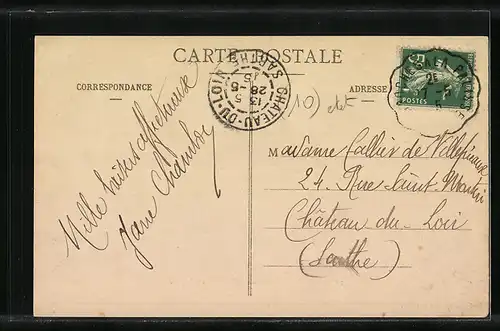 CARTE POSTALE
CORRESPONDANCE
ADRESSE
CHATEAU-DU-LOIR
SARTHE
13 5
28-5
15
POSTES
25
5
(10)
Mille baisers affectueux
Jane
Madame Callier de
24 Rue Saint-Martin
Château du Loir
(Sarthe)